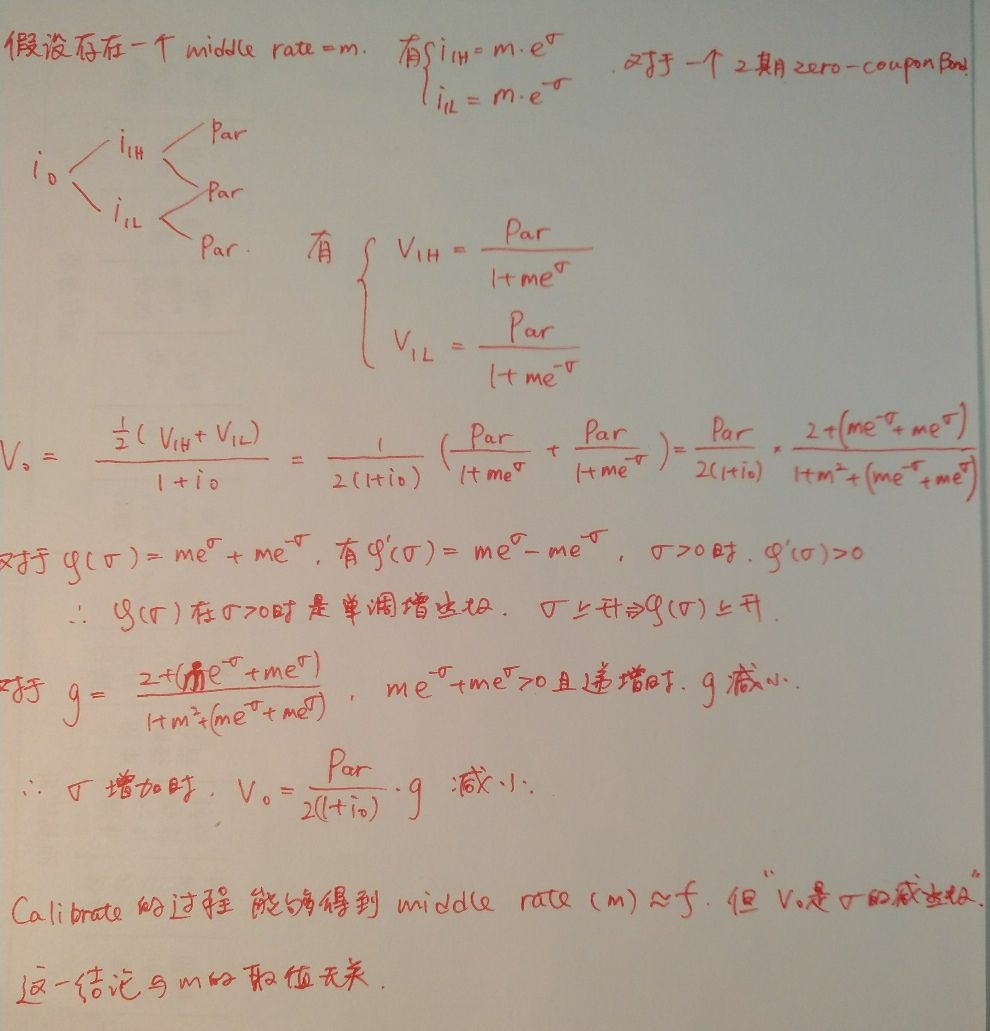 假设存在一个 middle rate = m. 有 { i₁H = m·e^σ
i₁L = m·e^-σ . 对于一个 2期 zero-coupon Bond.
i₀ i₁H i₁L Par Par Par.
有 { V₁H = Par / (1+me^σ)
V₁L = Par / (1+me^-σ)
V₀ = ½(V₁H + V₁L) / (1+i₀) = 1 / 2(1+i₀) (Par / (1+me^σ) + Par / (1+me^-σ)) = Par / 2(1+i₀) * (2+(me^-σ+me^σ)) / (1+m²+(me^-σ+me^σ))
对于 φ(σ) = me^σ + me^-σ, 有 φ'(σ) = me^σ - me^-σ, σ>0时. φ'(σ)>0
∴ φ(σ) 在 σ>0时 是 单调增函数. σ上升⇒φ(σ)上升.
对于 g = (2+(me^-σ+me^σ)) / (1+m²+(me^σ+me^σ)), me^-σ+me^σ>0 且 递增时. g 减小.
∴ σ 增加时. V₀ = Par / 2(1+i₀) · g 减小.
Calibrate 的过程 能够得到 middle rate (m) ≈ f. 但 "V₀是 σ的减函数"
这一结论与m的取值无关.